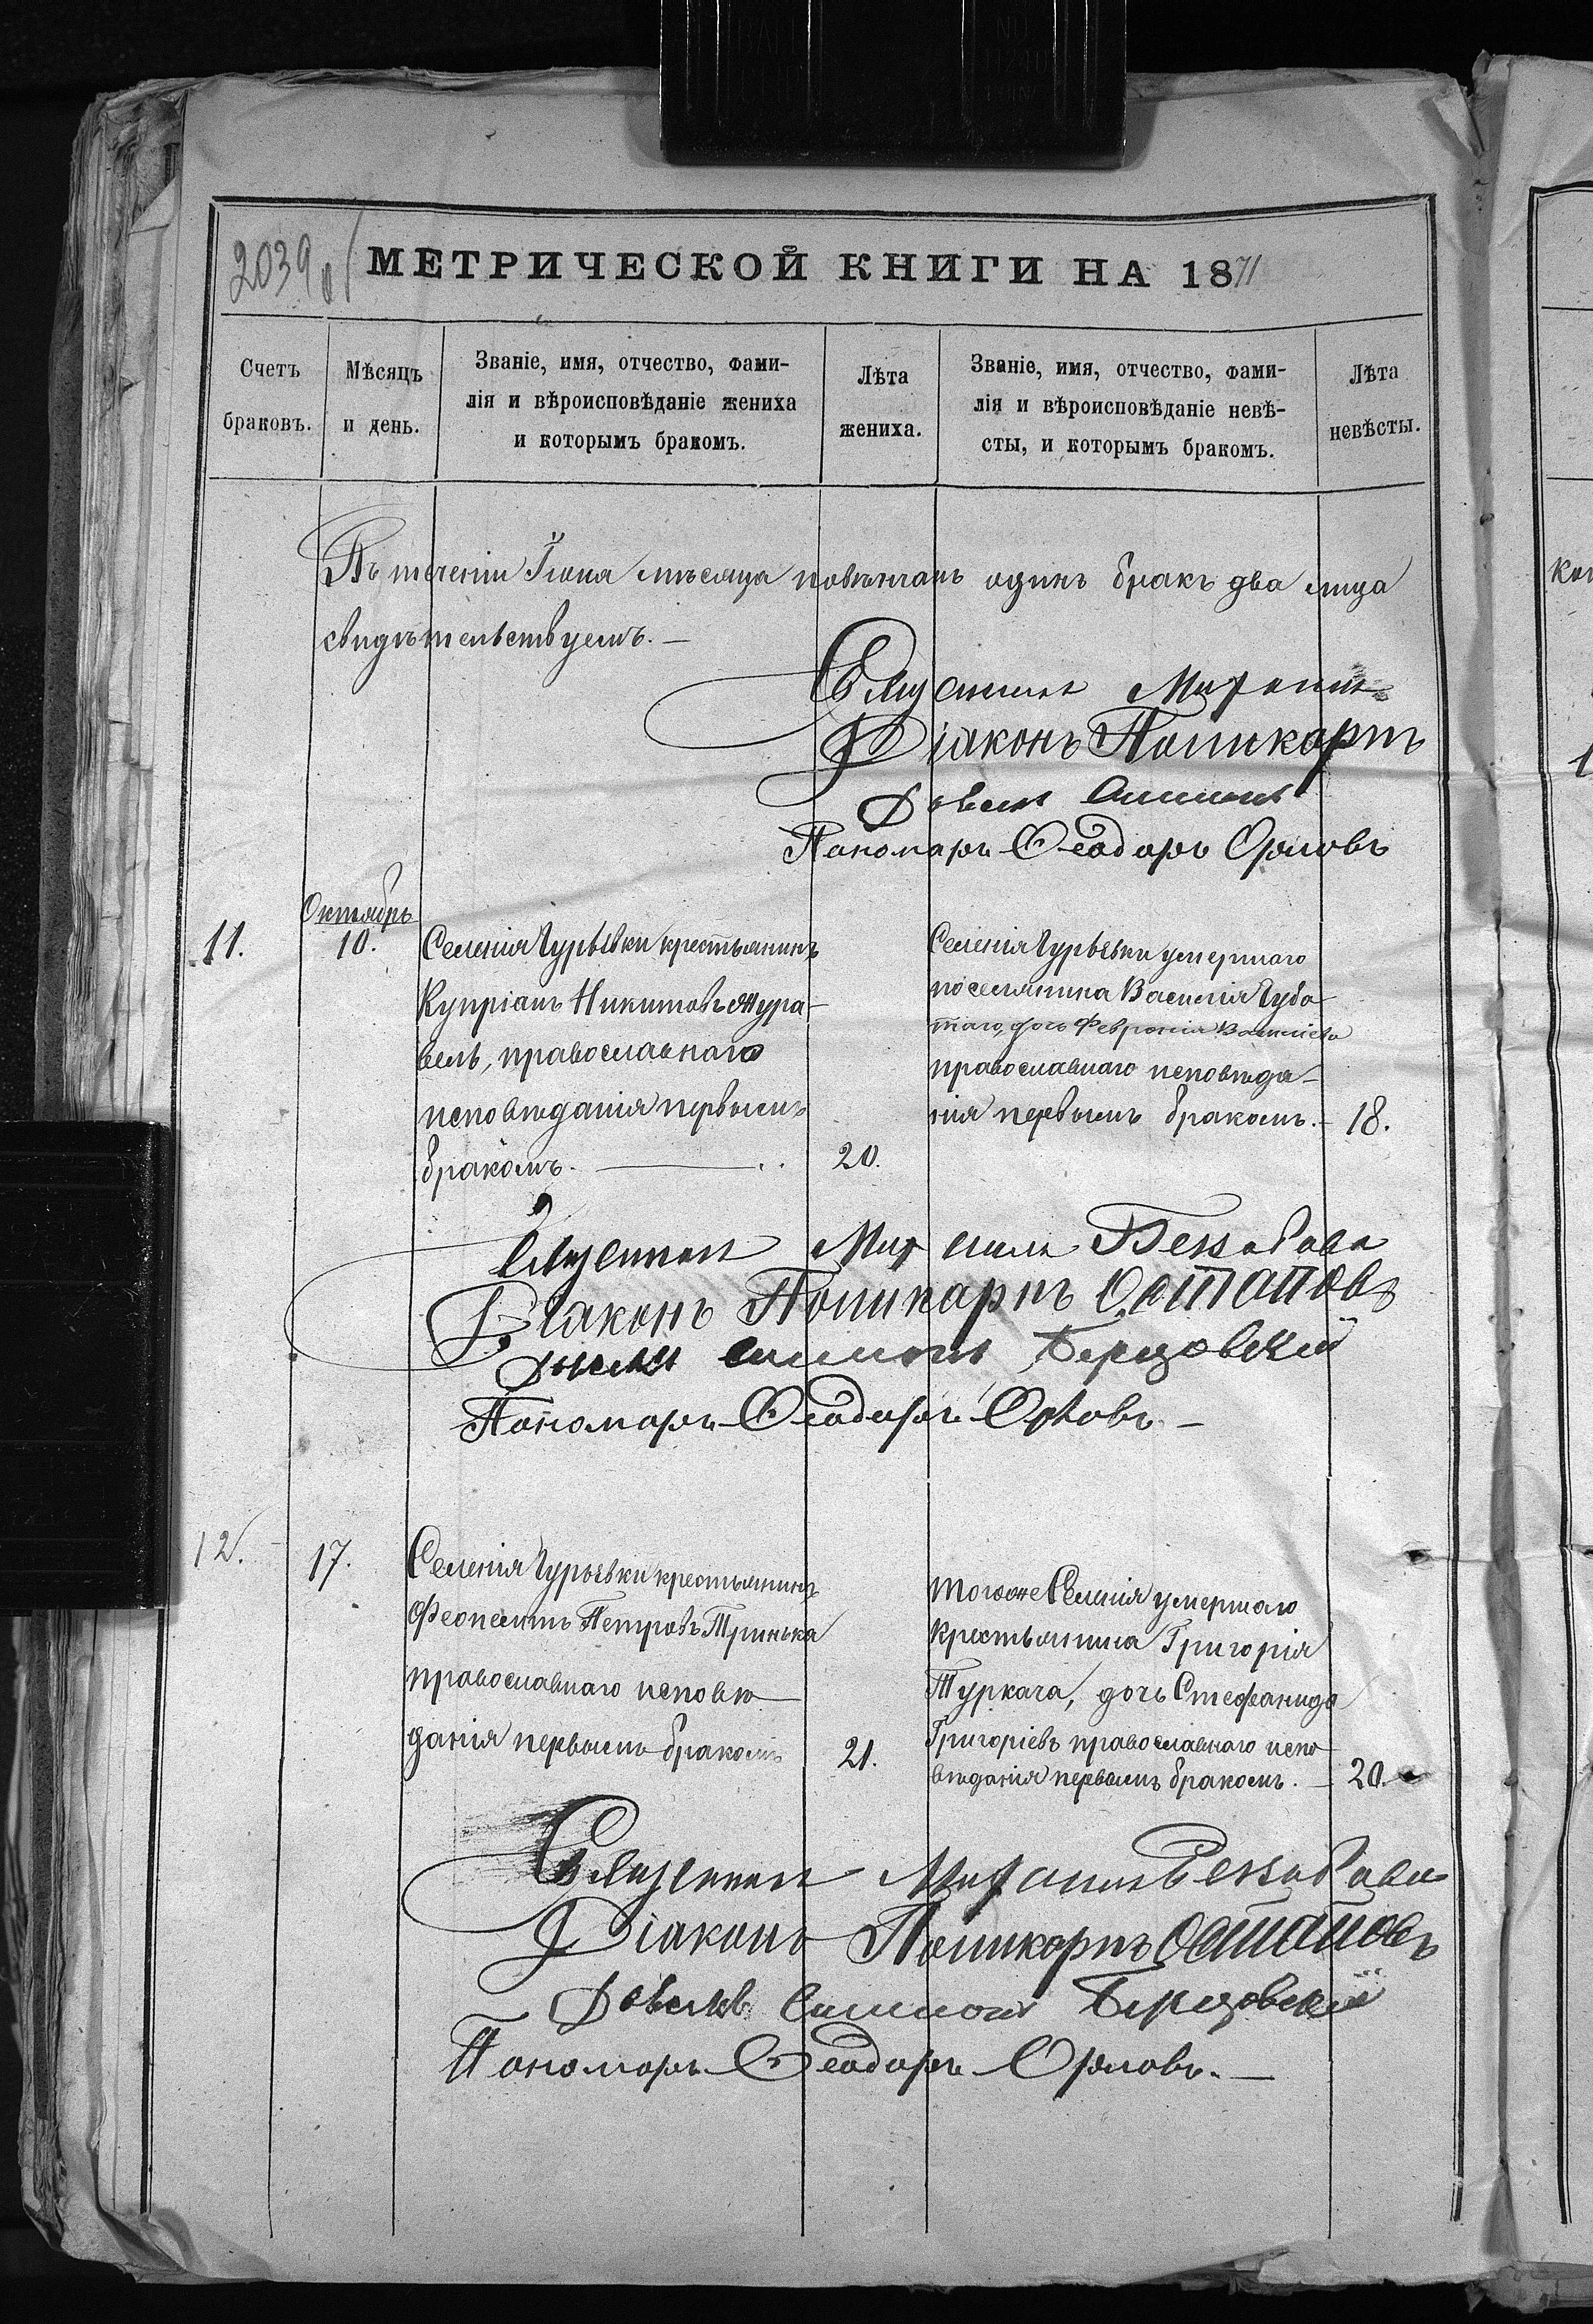 2039 об
МЕТРИЧЕСКОЙ КНИГИ НА 1871
Счетъ
браковъ.
Мѣсяцъ
и день.
Званіе, имя, отчество, фами-
лія и вѣроисповѣданіе жениха
и которымъ бракомъ.
Лѣта
жениха.
Званіе, имя, отчество, фами-
лія и вѣроисповѣданіе невѣ-
сты, и которымъ бракомъ.
Лѣта
невѣсты.
Въ теченіи Іюня мѣсяца повѣнчанъ одинъ бракъ два лица
свидѣтельствуемъ.—
Священник Михаил
Діаконъ Поликарпъ
Дьячек Симеон
Пономарь Феодоръ Орловъ
11.
Октябрь
10.
Селенія Гурьевки крестьянинъ
Купріанъ Никитовъ Жура-
вель, православнаго
исповѣданія первымъ
бракомъ.
20.
Селенія Гурьевки умершаго
поселянина Василія Губа-
таго, дочь Февронія Василіева
православнаго исповѣда-
нія первымъ бракомъ.—
18.
Священник Михаил
Діаконъ Поликарпъ Остаповъ
Дьячек Симеон Березовскій
Пономарь Феодоръ Орловъ.—
12.
17.
Селенія Гурьевки крестьянинъ
Феопемптъ Петровъ Тринька
православнаго исповѣ-
данія первымъ бракомъ
21.
Тогоже Селенія умершаго
крестьянина Григорія
Туркача, дочь Стефанида
Григоріевъ православнаго испо-
вѣданія первымъ бракомъ.—
20.
Священник Михаил
Діаконъ Поликарпъ Остаповъ
Дьячекъ Симеон Березовскій
Пономарь Феодоръ Орловъ.—